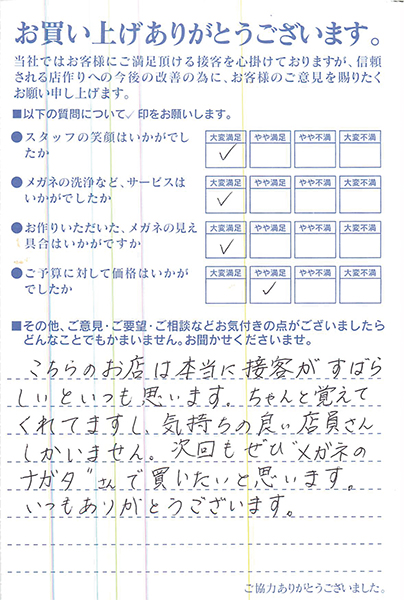 お買い上げありがとうございます。
当社ではお客様にご満足頂ける接客を心掛けておりますが、信頼
される店作りへの今後の改善の為に、お客様のご意見を賜りたく
お願い申し上げます。
■以下の質問について✓印をお願いします。
●スタッフの笑顔はいかがでし
たか
大変満足 やや満足 やや不満 大変不満
✓
●メガネの洗浄など、サービスは
いかがでしたか
大変満足 やや満足 やや不満 大変不満
✓
●お作りいただいた、メガネの見え
具合はいかがですか
大変満足 やや満足 やや不満 大変不満
✓
●ご予算に対して価格はいかが
でしたか
大変満足 やや満足 やや不満 大変不満
✓
■その他、ご意見・ご要望・ご相談などお気付きの点がございましたら
どんなことでもかまいません。お聞かせくださいませ。
こちらのお店は本当に接客がすばら
しいといつも思います。ちゃんと覚えて
くれてますし、気持ちの良い店員さん
しかいません。次回もぜひ"メガネの
ナガタ"さんで買いたいと思います。
いつもありがとうございます。
ご協力ありがとうございました。